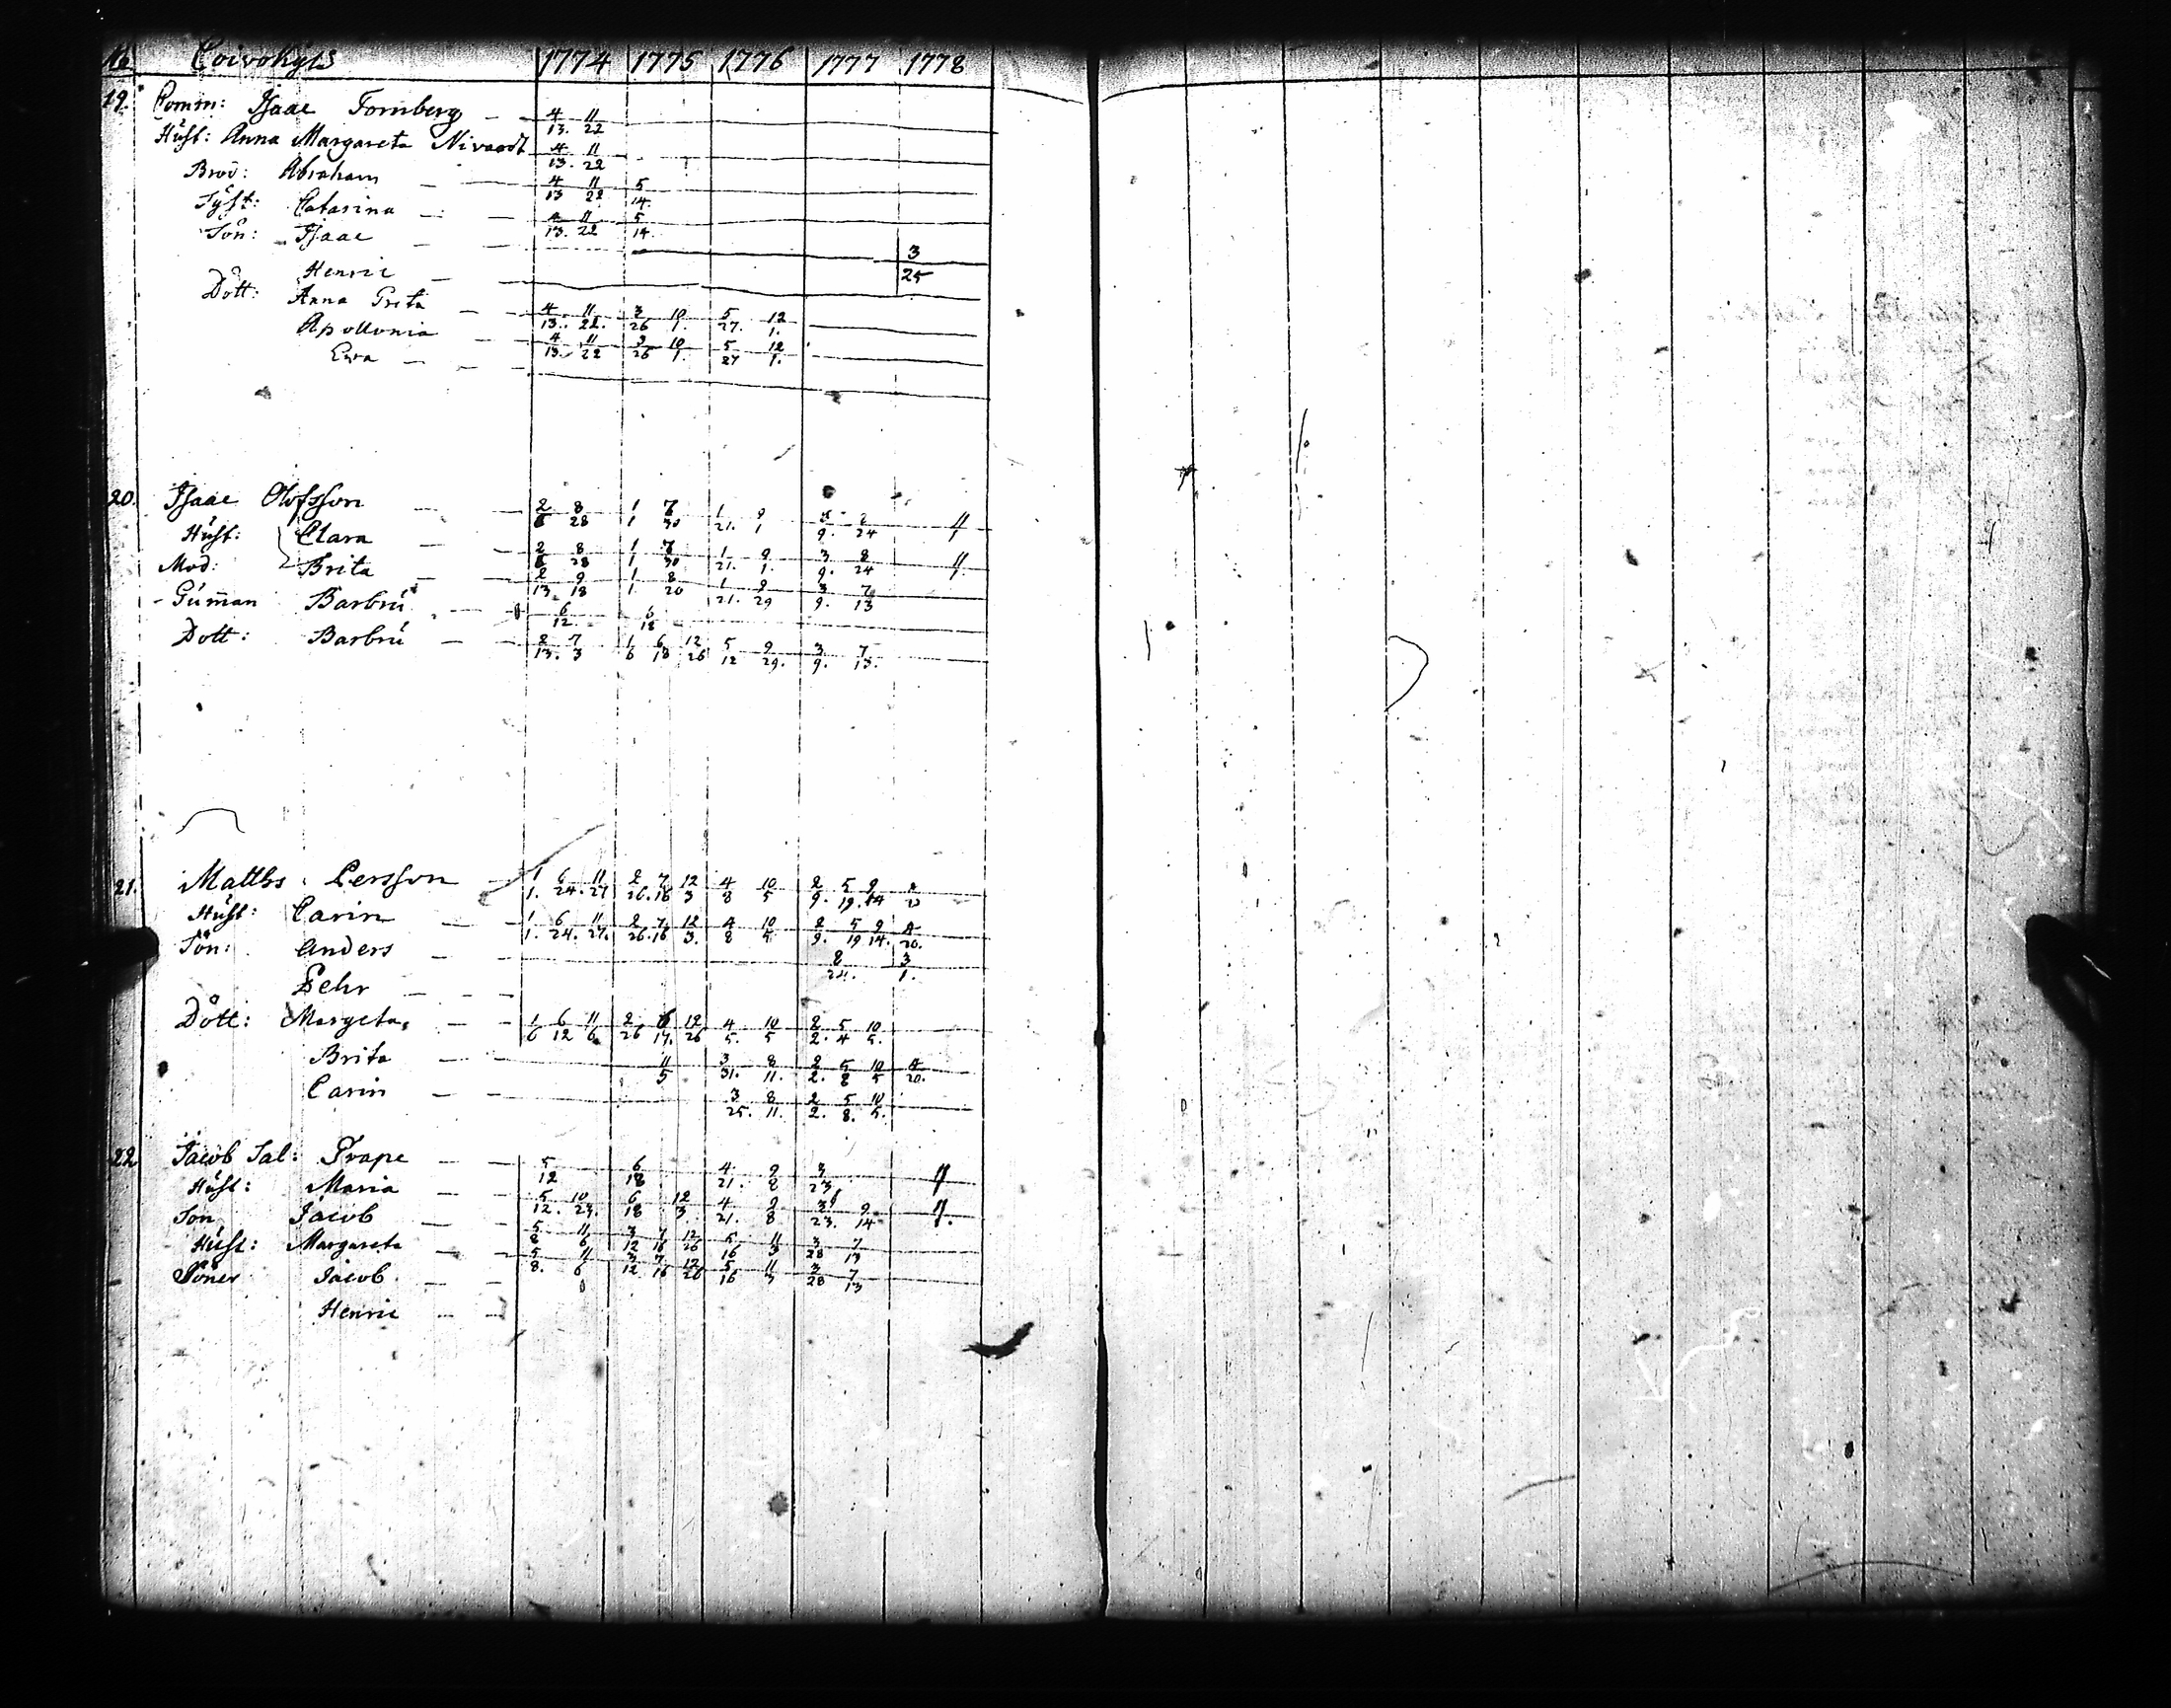 Coivokylä 1774 1775 1776 1777 1778
19. Comm: Isaac Fornberg 4/13. 11/22
Hust: Anna Margareta 4/13. 11/22
Brod: Abraham 4/13 11/22 5/14.
Syst: Catarina 4/13. 11/22 5/14.
Sön: Isaac 3/25
Henric
Dött: Anna Greta 4/13. 11/22. 3/26 10/1. 5/27. 12/1.
Apollonia 4/13. 11/22 3/26 10/1. 5/27 12/1.
Ewa
20. Isaac Olofsson 2/6 8/28 1/1 7/30 1/21. 9/1 24
Hust: Clara 2/6 8/28 1/1 7/30 1/21. 9/1. 3/9. 8/24 //
Mod: Brita 2/13. 9/18 1/1. 8/20 1/21. 9/29 3/9. 7/13
Gum̄an Barbru 6/12 6/18
Dott: Barbru 2/13. 7/3 1/6 6/18 12/26 5/12 9/29. 3/9. 7/13.
21. Matths Persson 1/1. 6/24. 11/27 2/26. 7/16 12/3 4/8 10/5 2/9. 5/19. 9/14
Hust: Carin 1/1. 6/24. 11/27. 2/26. 7/16 12/3. 4/8 10/5 2/9. 5/19 9/14. 4/20.
Sön: Anders 8/24. 3/1.
Pehr
Dött: Margeta 1/6 6/12 11/6 2/26 12/26 4/5. 10/5 2/2. 5/4 10/5.
Brita 11/5 3/31. 8/11. 2/2. 5/8 10/5 4/20.
Carin 3/25. 8/11. 2/2. 5/8. 10/5.
22 Jacob Sal: Trape 5/12 6/18 4/21. 9/8 3/23 //
Hust: Maria 5/12. 10/23. 6/18 12/3 4/21. 9/8 3/23. 9/14 //.
Son Jacob 5/8 11/6 3/12 7/16 12/26 5/16 11/3 3/28 7/13
Hust: Margareta 5/8. 11/6 3/12 7/16 12/26 5/16 11/3 3/28 7/13
Söner Jacob
Henric